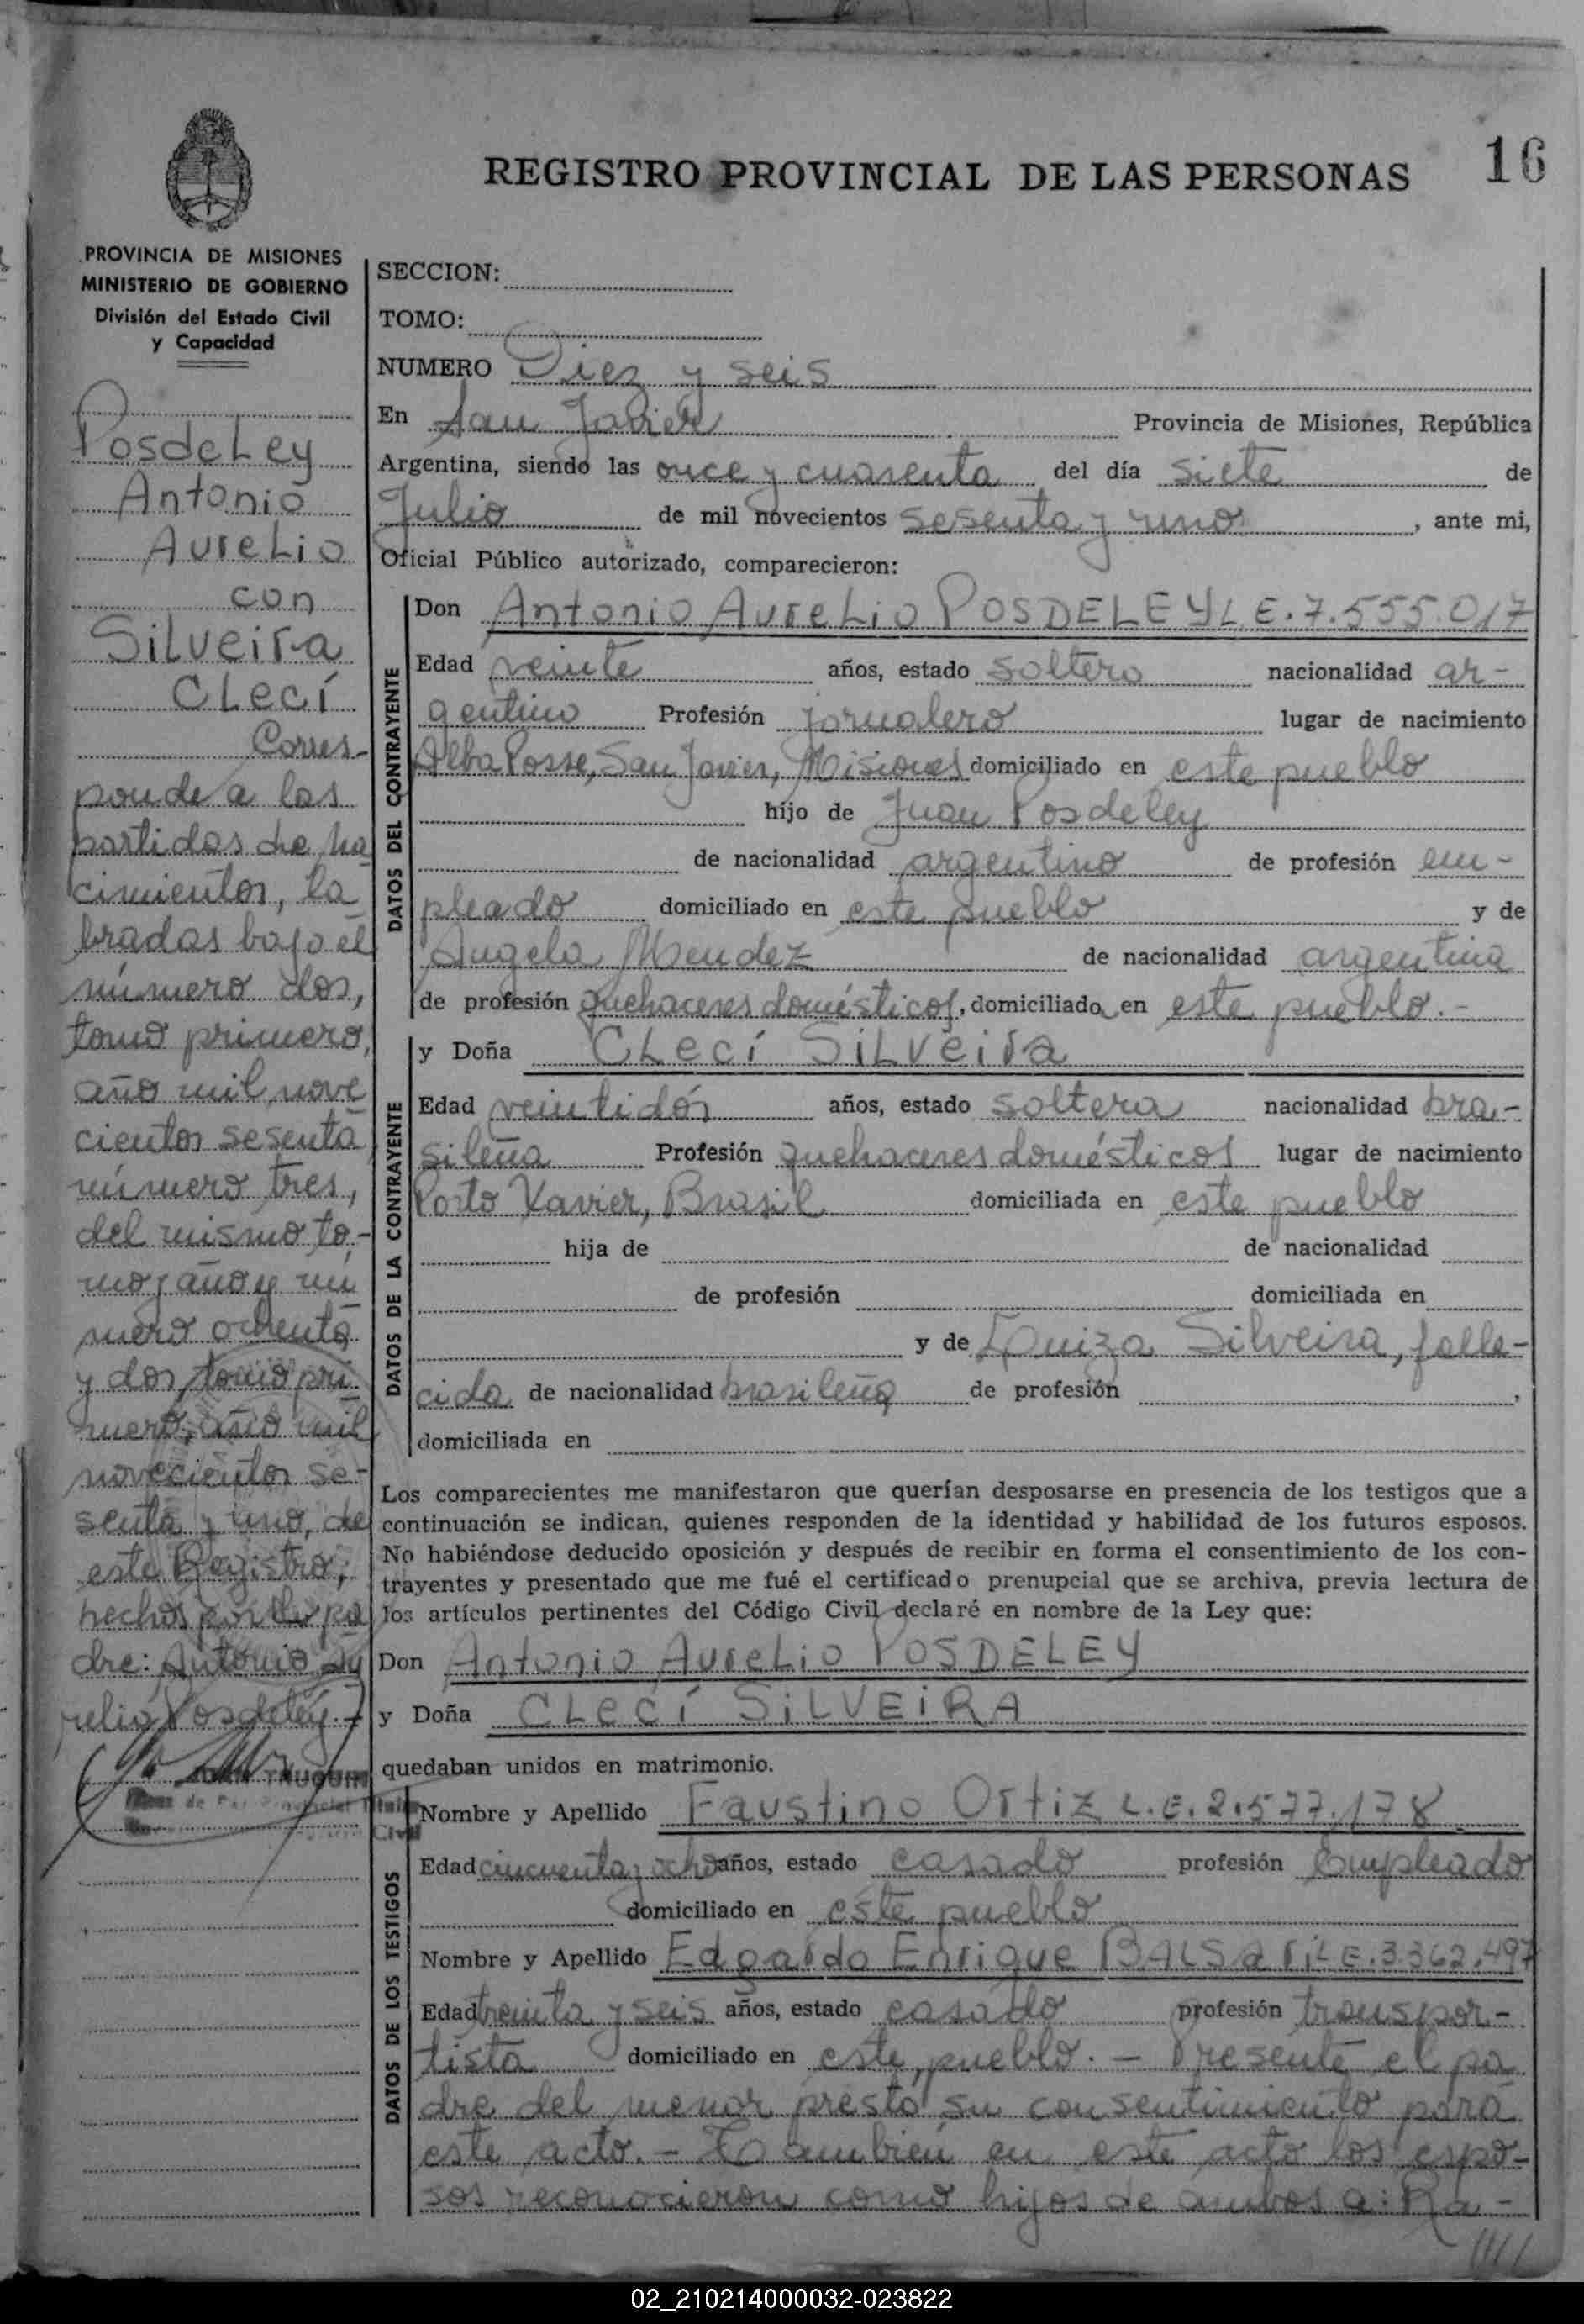 REGISTRO PROVINCIAL DE LAS PERSONAS
16
PROVINCIA DE MISIONES
MINISTERIO DE GOBIERNO
División del Estado Civil
y Capacidad
Posdeley
Antonio
Aurelio
con
Silveira
Clecí
Corres-
ponde a las
partidas de na
cimientos, la
bradas bajo el
número dos,
tomo primero,
año mil nove
cientos sesenta
número tres,
del mismo to-
mo y año y nú
mero ochenta
y dos, tomo pri
mero, año mil
novecientos se-
senta y uno, de
este Registro,
hechos por su pa
dre: Antonio Au
relio Posdeley.-
SECCION:
TOMO:
NUMERO Diez y seis
En San Javier Provincia de Misiones, República
Argentina, siendo las once y cuarenta del día siete de
Julio de mil novecientos sesenta y uno, ante mi,
Oficial Público autorizado, comparecieron:
DATOS DEL CONTRAYENTE
Don Antonio Aurelio POSDELEY L.E.7.555.017
Edad veinte años, estado soltero nacionalidad ar-
gentino Profesión jornalero lugar de nacimiento
Alba Posse, San Javier, Misiones domiciliado en este pueblo
hijo de Juan Posdeley
de nacionalidad argentino de profesión em-
pleado domiciliado en este pueblo y de
Angela Mendez de nacionalidad argentina
de profesión quehaceres domésticos, domiciliado en este pueblo.-
DATOS DE LA CONTRAYENTE
y Doña Clecí Silveira
Edad veintidós años, estado soltera nacionalidad bra-
sileña Profesión quehaceres domésticos lugar de nacimiento
Porto Xavier, Brasil domiciliada en este pueblo
hija de de nacionalidad
de profesión domiciliada en
y de Louiza Silveira, falle-
cida de nacionalidad brasileña de profesión ,
domiciliada en
Los comparecientes me manifestaron que querían desposarse en presencia de los testigos que a
continuación se indican, quienes responden de la identidad y habilidad de los futuros esposos.
No habiéndose deducido oposición y después de recibir en forma el consentimiento de los con-
trayentes y presentado que me fué el certificado prenupcial que se archiva, previa lectura de
los artículos pertinentes del Código Civil declaré en nombre de la Ley que:
Don Antonio Aurelio POSDELEY
y Doña CLECÍ SILVEIRA
quedaban unidos en matrimonio.
DATOS DE LOS TESTIGOS
Nombre y Apellido Faustino Ortiz L.E.2.577.178
Edad cincuenta y ocho años, estado casado profesión Empleado
domiciliado en este pueblo
Nombre y Apellido Edgardo Enrique BALSari L.E.3.362.497
Edad treinta y seis años, estado casado profesión transpor-
tista domiciliado en este pueblo.- Presente el pa
dre del menor prestó su consentimiento para
este acto.- También en este acto los espo-
sos reconocieron como hijos de ambos a: Ra-
////
02_210214000032-023822